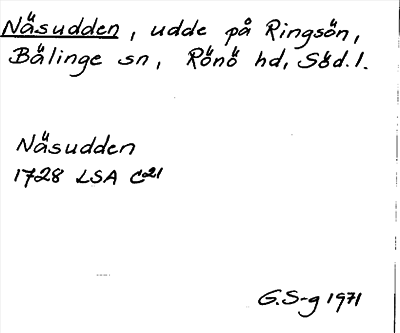 Näsudden, udde på Ringsön,
Bälinge sn, Rönö hd, Söd. l.
Näsudden
1728 LSA C21
G.S-g 1971